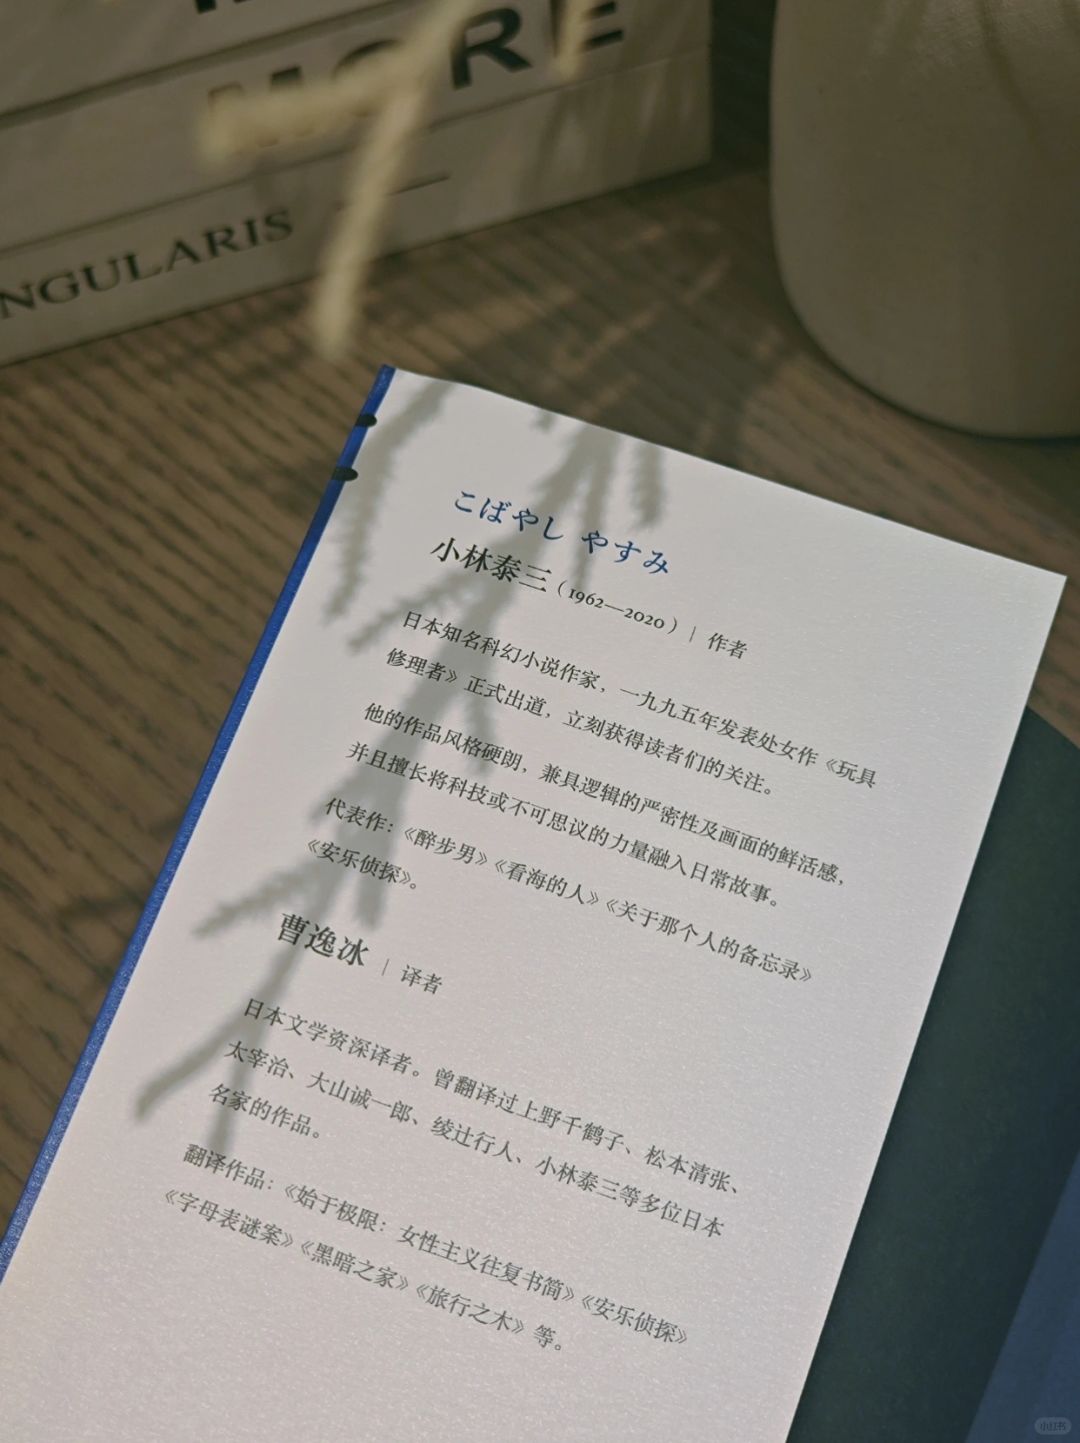 MORE
NGULARIS
こばやし やすみ
小林泰三（1962—2020）｜作者
日本知名科幻小说作家，一九九五年发表处女作《玩具
修理者》正式出道，立刻获得读者们的关注。
他的作品风格硬朗，兼具逻辑的严密性及画面的鲜活感，
并且擅长将科技或不可思议的力量融入日常故事。
代表作：《醉步男》《看海的人》《关于那个人的备忘录》
《安乐侦探》。
曹逸冰｜译者
日本文学资深译者。曾翻译过上野千鹤子、松本清张、
太宰治、大山诚一郎、绫辻行人、小林泰三等多位日本
名家的作品。
翻译作品：《始于极限：女性主义往复书简》《安乐侦探》
《字母表谜案》《黑暗之家》《旅行之木》等。
小红书